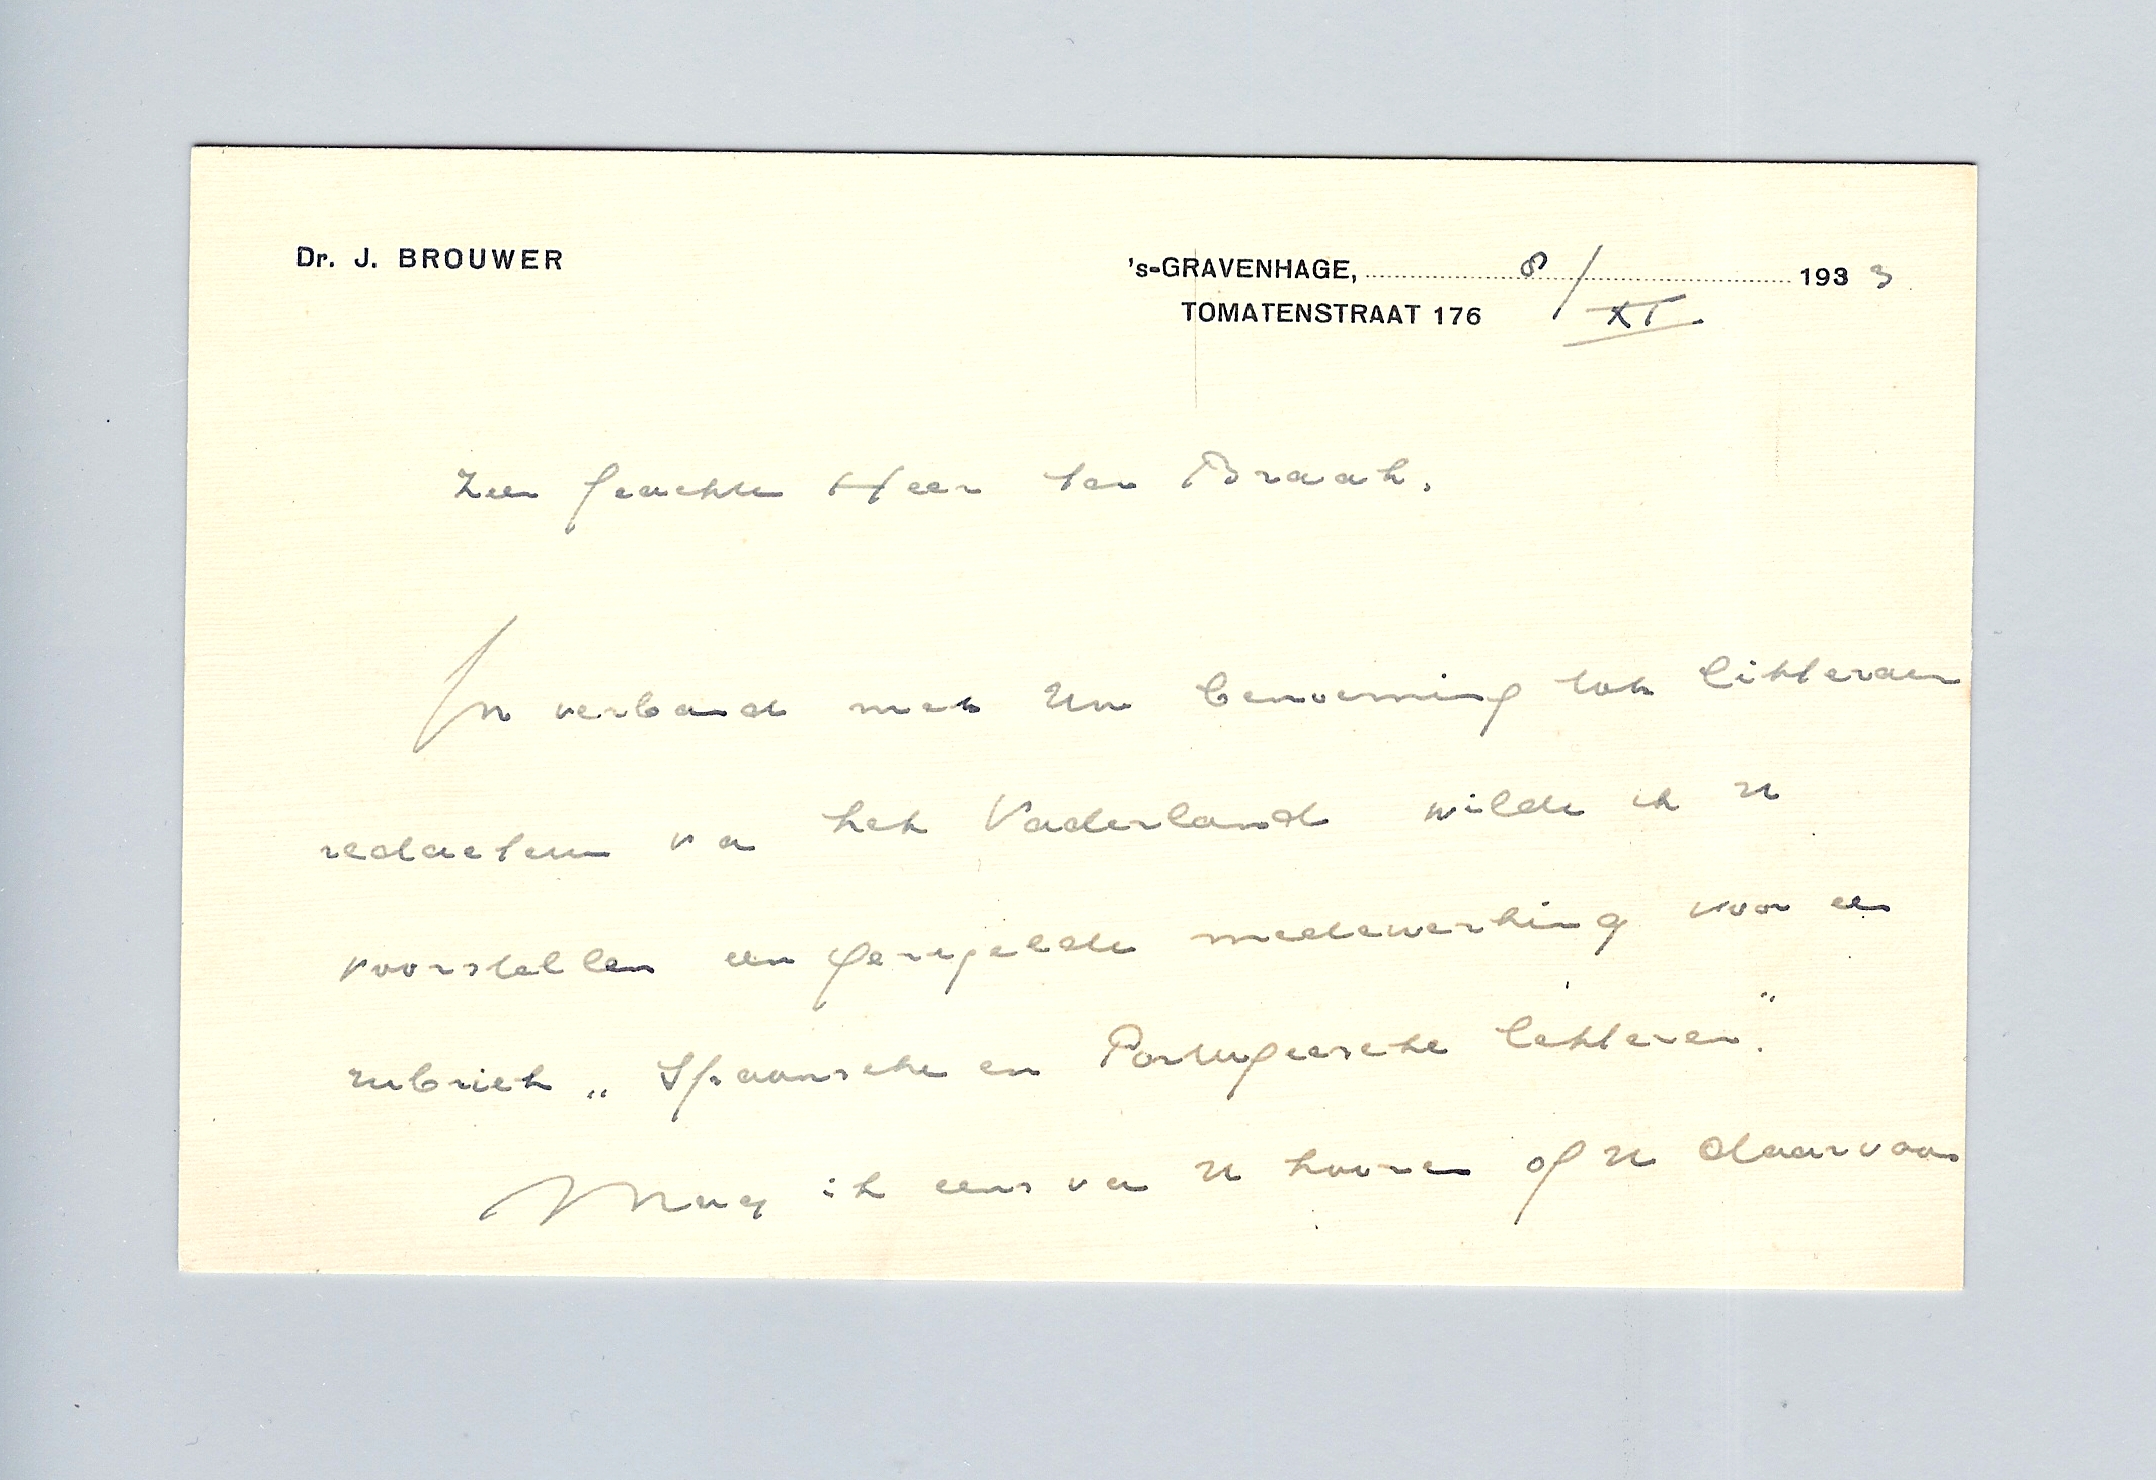 Dr. J. BROUWER
's-GRAVENHAGE, 8/XI 1933
TOMATENSTRAAT 176
Zeer geachte Heer ter Braak,
In verband met Uw benoeming tot litterair
redacteur va het Vaderland wilde ik U
voorstellen een geregelde medewerking voor een
rubriek „Spaansche en Portugeesche letteren."
Mag ik eens van U hooren of U daarvoor